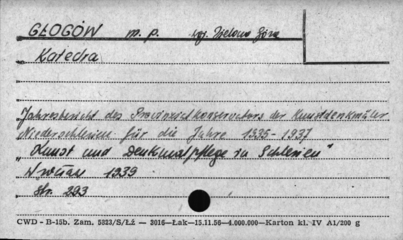 GŁOGÓW m. p. woj. Zielona Góra
Katedra
Jahresbericht des Provinzialkonservators der Kunstdenkmäler
Niederschlesien für die Jahre 1935-1937
"Kunst und Denkmalpflege in Schlesien"
1939
Str. 293
CWD - B-15b. Zam. 5823/S/Łź — 3016—Łak—15.11.56—4.000.000—Karton kl. IV A1/200 g